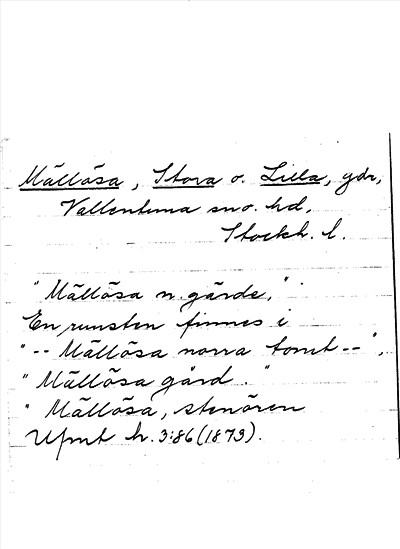 Mällösa, Stora o. Lilla, gdr,
Vallentuna sn o. hd,
Stockh. l.
"Mällösa n. gärde,"
En runsten finnes i
"-- Mällösa norra tomt --",
"Mällösa gärd."
" Mällösa, stenören
Upmt h. 3:86 (1873).